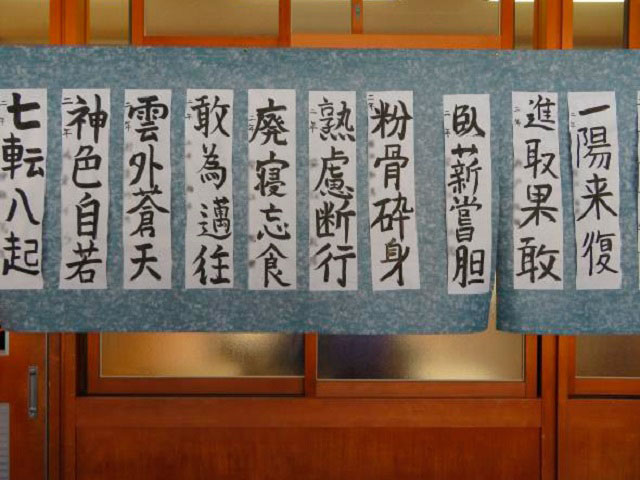 一陽来復
進取果敢
臥薪嘗胆
粉骨砕身
熟慮断行
廃寝忘食
敢為邁往
雲外蒼天
神色自若
七転八起